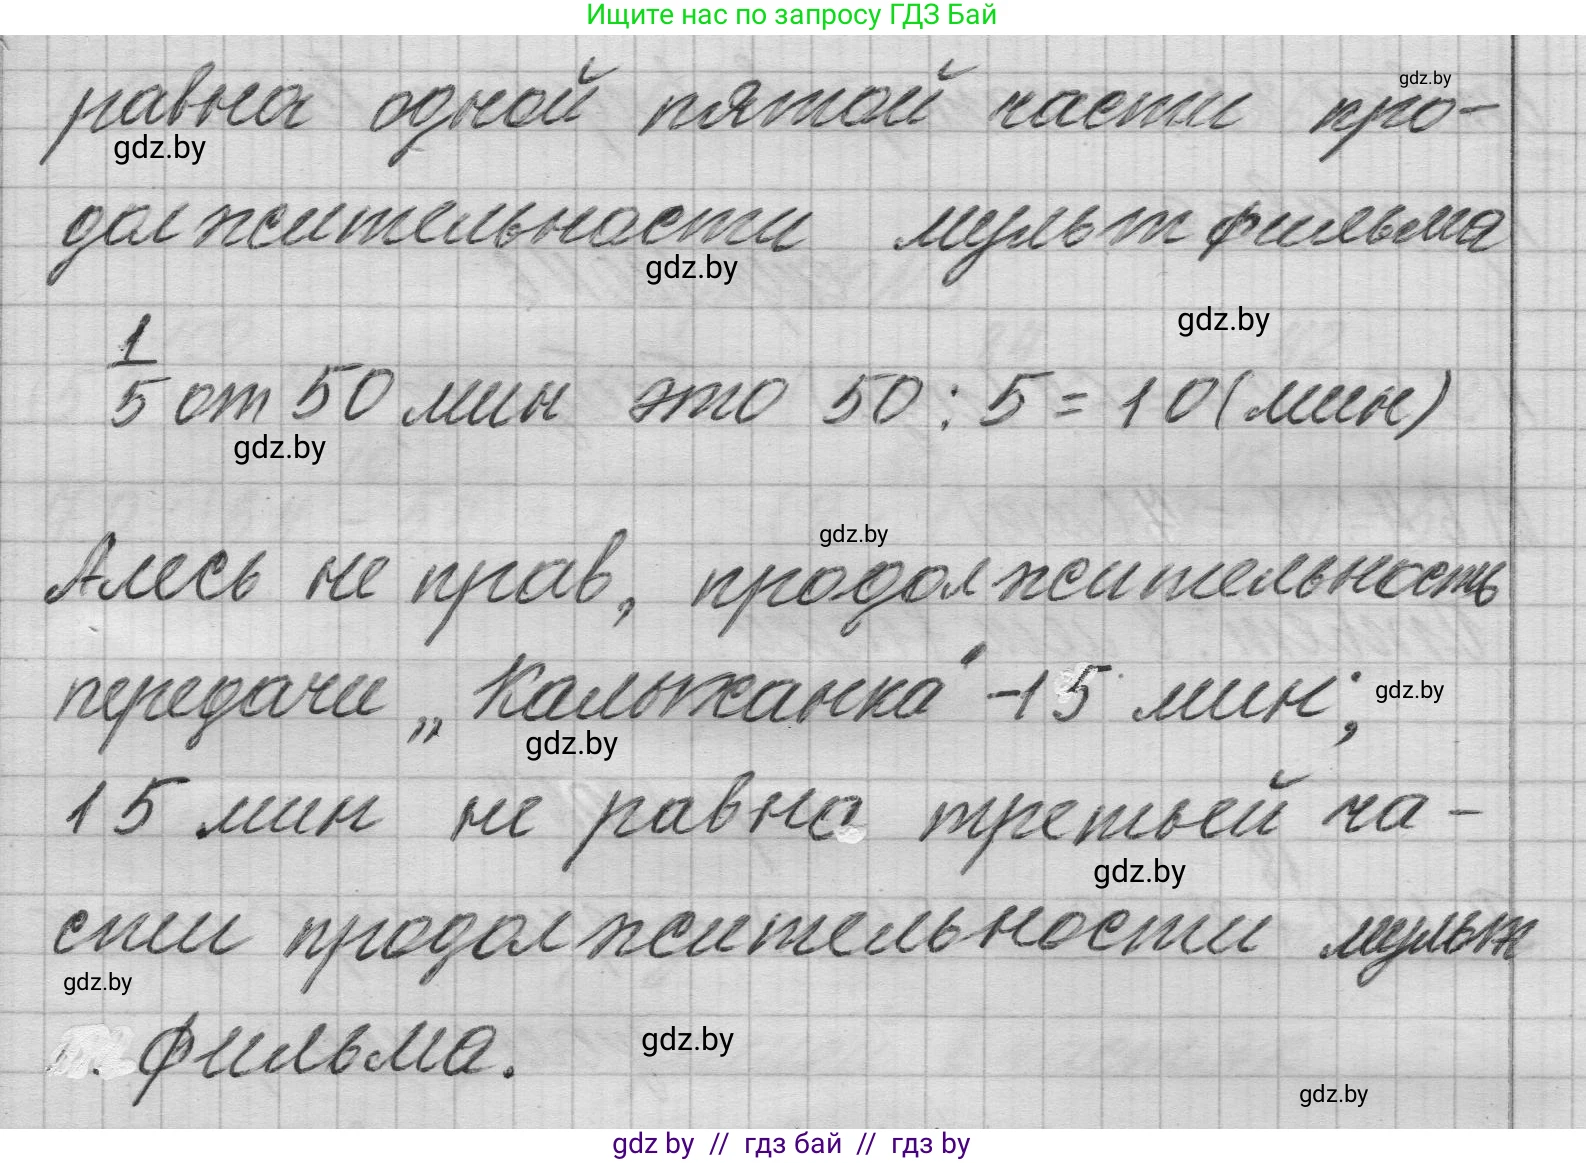 Ищите нас по запросу ГДЗ Бай
gdz.by
равна одной пятой части про-
gdz.by
должительности мультфильма
gdz.by
gdz.by
1
5 от 50 мин это 50 : 5 = 10 (мин)
gdz.by
gdz.by
Алесь не прав, продолжительность
передачи „Калыханка" - 15 мин;
gdz.by
gdz.by
15 мин не равна третьей ча-
gdz.by
сти продолжительности мульт
gdz.by
фильма.
gdz.by
gdz.by
gdz by // гдз бай // гдз by